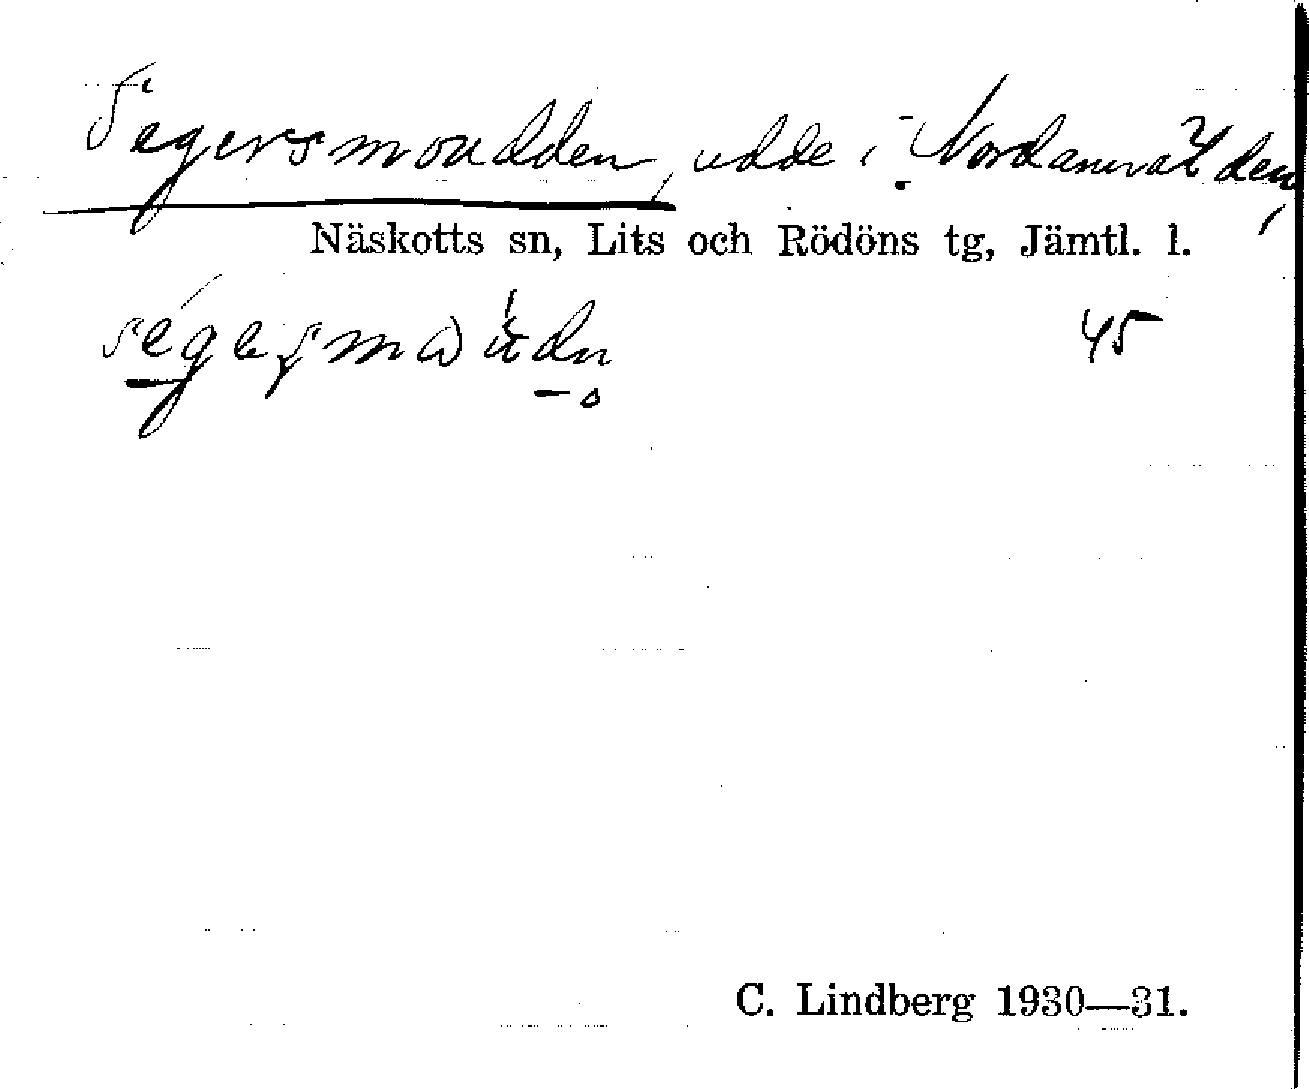 Segersmoudden, udde i Nordanvälden,
Näskotts sn, Lits och Rödöns tg, Jämtl. l.
45
C. Lindberg 1930—31.